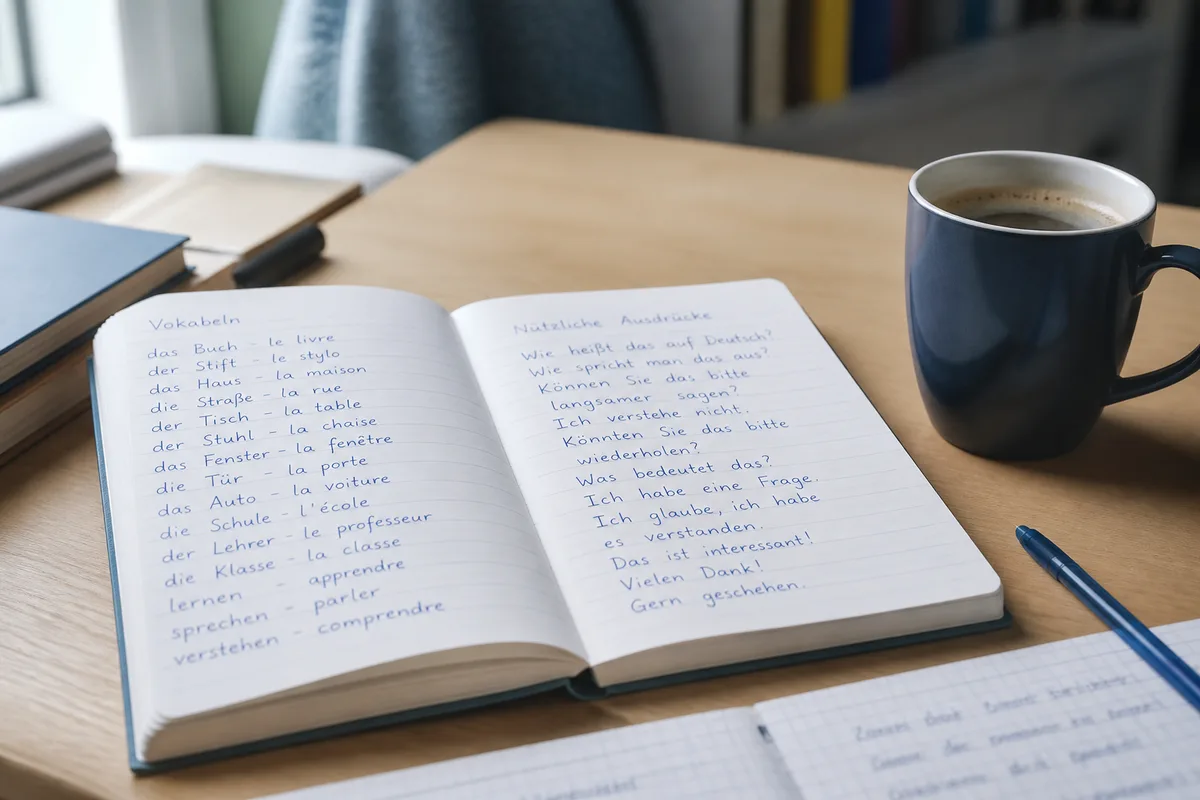 Vokabeln
das Buch - le livre
der Stift - le stylo
das Haus - la maison
die Straße - la rue
der Tisch - la table
der Stuhl - la chaise
das Fenster - la fenêtre
die Tür - la porte
das Auto - la voiture
die Schule - l'école
der Lehrer - le professeur
die Klasse - la classe
lernen - apprendre
sprechen - parler
verstehen - comprendre
Nützliche Ausdrücke
Wie heißt das auf Deutsch?
Wie spricht man das aus?
Können Sie das bitte
langsamer sagen?
Ich verstehe nicht.
Könnten Sie das bitte
wiederholen?
Was bedeutet das?
Ich habe eine Frage.
Ich glaube, ich habe
es verstanden.
Das ist interessant!
Vielen Dank!
Gern geschehen.